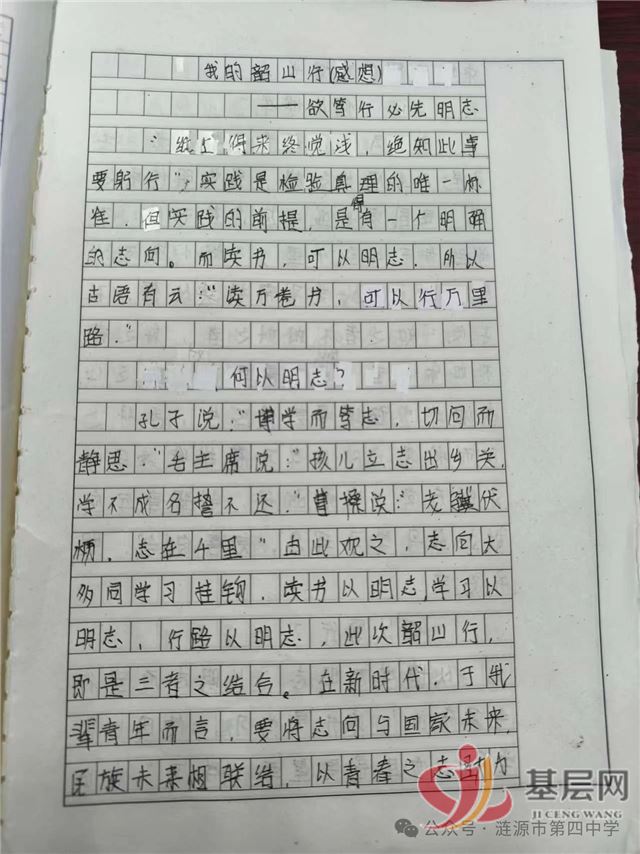 我的韶山行(感想)
——欲笃行必先明志
“纸上得来终觉浅，绝知此事
要躬行”，实践是检验真理的唯一标
准，但实践的前提，是得有一个明确
的志向。而读书，可以明志，所以
古语有云：“读万卷书，可以行万里
路。”
何以明志？
孔子说：“博学而笃志，切问而
静思。”毛主席说：“孩儿立志出乡关，
学不成名誓不还。”曹操说：“老骥伏
枥，志在千里”由此观之，志向大
多同学习挂钩，读书以明志，学习以
明志，行路以明志，此次韶山行，
即是三者之结合。在新时代，于我
辈青年而言，要将志向与国家未来，
民族未来相联结，以青春之志
基层网
JI CENG WANG
公众号·涟源市第四中学